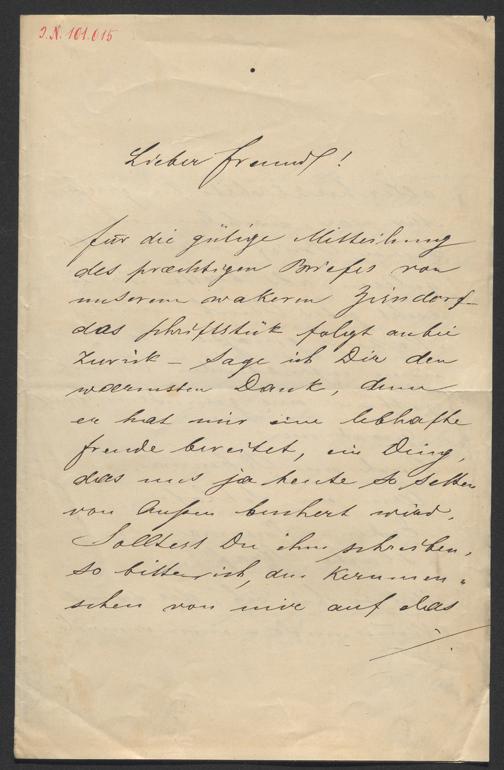 J.N. 101.015
Lieber Freund!
für die gütige Mittheilung
des præchtigen Briefes von
unserem wakeren Zinsdorf –
das Schriftstük folgt anbei
zurük – sage ich Dir den
wærmsten Dank, denn
er hat mir eine lebhafte
Freude bereitet, ein Ding,
das uns ja heute so selten
von Außen beschert wird.
Solltest Du ihm schreiben,
so bitte ich, den Kernmen-
schen von mir auf das